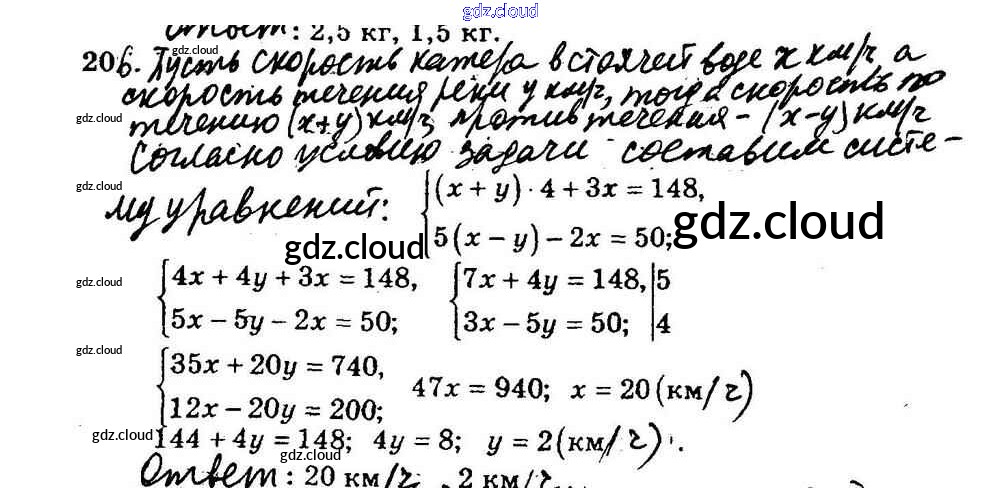 gdz.cloud
Ответ: 2,5 кг, 1,5 кг.
gdz.cloud
206. Пусть скорость катера в стоячей воде x км/ч, а
скорость течения реки y км/ч, тогда скорость по
gdz.cloud
течению (x+y) км/ч, против течения - (x-y) км/ч
Согласно условию задачи составим систе-
gdz.cloud
му уравнений: {(x + y) · 4 + 3x = 148,
5(x − y) − 2x = 50;
gdz.cloud
gdz.cloud
gdz.cloud
{4x + 4y + 3x = 148, {7x + 4y = 148, |5
5x − 5y − 2x = 50; 3x − 5y = 50; |4
gdz.cloud
{35x + 20y = 740,
12x − 20y = 200;
47x = 940; x = 20 (км/ч)
gdz.cloud
144 + 4y = 148; 4y = 8; y = 2 (км/ч).
gdz.cloud
Ответ: 20 км/ч, 2 км/ч.